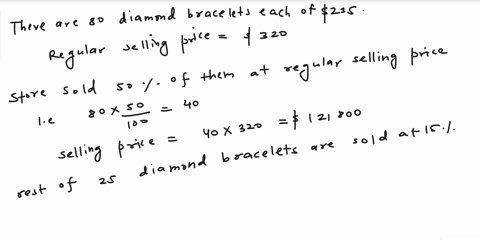 There are 80 diamond bracelets each of $235.
Regular selling price = $320
Store sold 50 % of them at regular selling price
I.e 80 × 50/100 = 40
selling price = 40 × 320 = $121800
rest of 25 diamond bracelets are sold at 15 %.